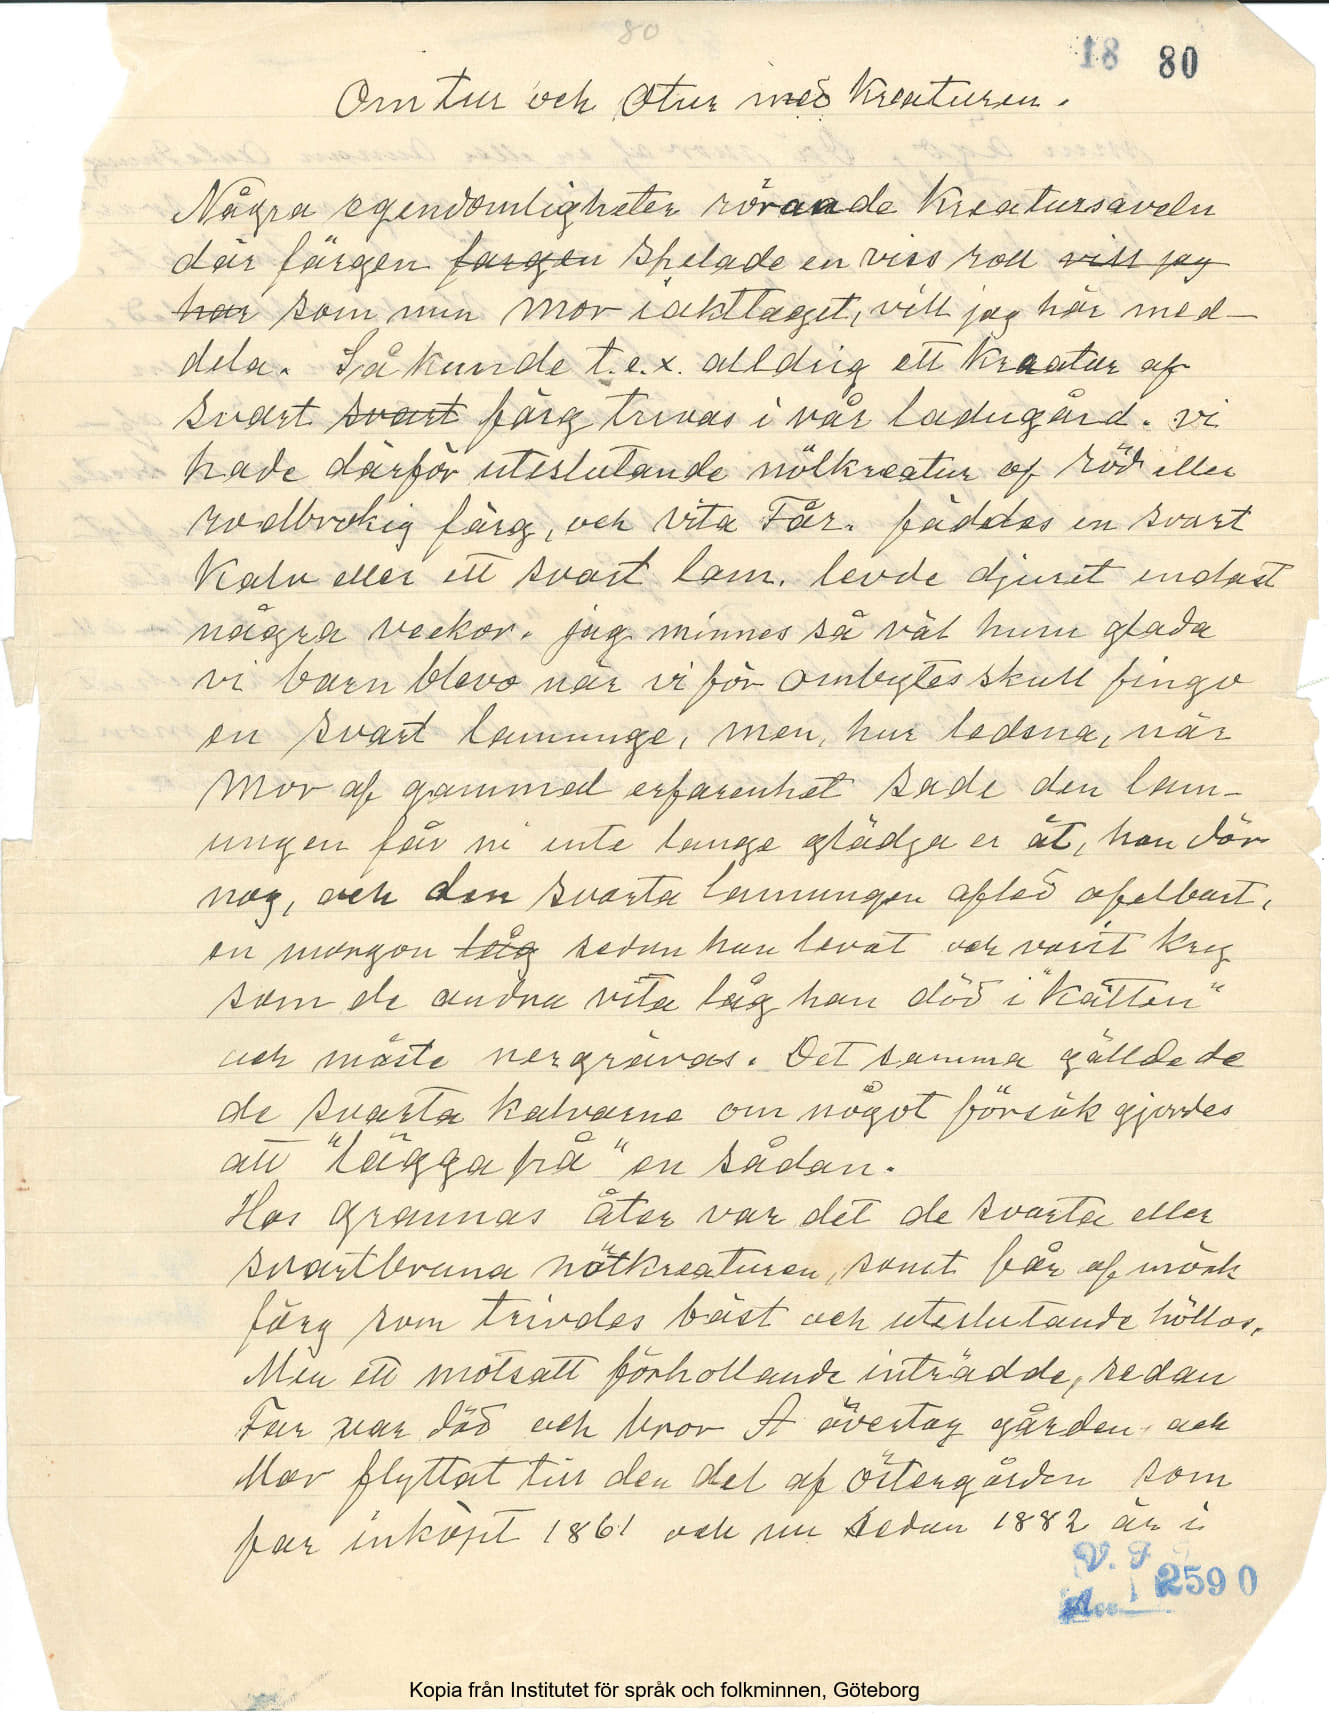 80
18 80
Om tur och otur med Kreaturen.
Några egendomligheter rörande Kreatursaveln
där färgen fargen spelade en viss roll vill jag
har som min Mor iakttaget, vill jag här med-
dela. Så kunde t.e.x. alldrig ett Kreatur af
svart svart färg trivas i vår ladugård. vi
hade därför uteslutande nötkreatur af röd eller
rodbrokig färg, och vita Får. föddes en svart
Kalv eller ett svart lam. levde djuret endast
några veckor. jag minnes så väl huru glada
vi barn blevo när vi för ombytes skull fingo
en svart lamunge, men, hur ledsna, när
Mor af gammal erfarenhet sade den lam-
ungen får ni inte länge glädja er åt, han dör
nog, och den svarta lamungen afled ofelbart,
en morgon låg sedan han levat och varit kry
som de andra vita låg han död i "Kätten"
och måste nergrävas. Det samma gällde de
de svarta Kalvarne om något försök gjordes
att "lägga på" en sådan.
Hos grannas åter var det de svarta eller
svartbruna nötkreaturen, samt får af mörk
färg som trivdes bäst och uteslutande höllos.
Men ett motsatt förhollande inträdde, sedan
Far var död och bror A övertog gården och
Mor flyttat till den del af östergården som
far inköpt 1861 och nu sedan 1882 är i
V. F.
2590
Kopia från Institutet för språk och folkminnen, Göteborg